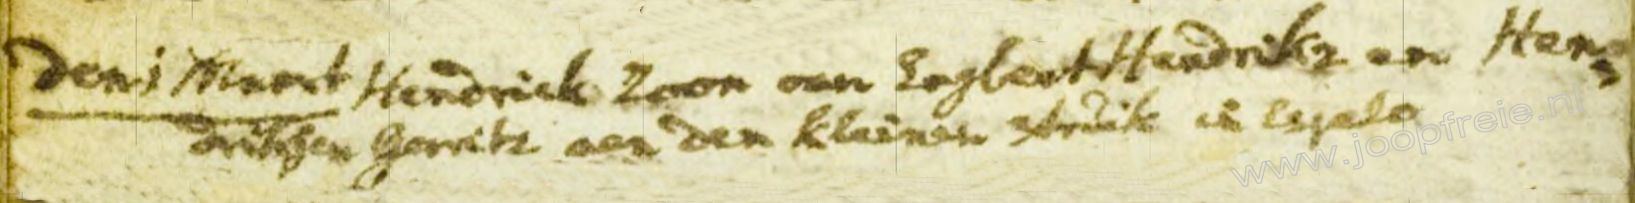 Den 1 Maart Hendrick Zoon van Engbert Hendriks en Hen=
driksen Gerrits aen den kleinen struik in Espelo
www.joopfreie.nl